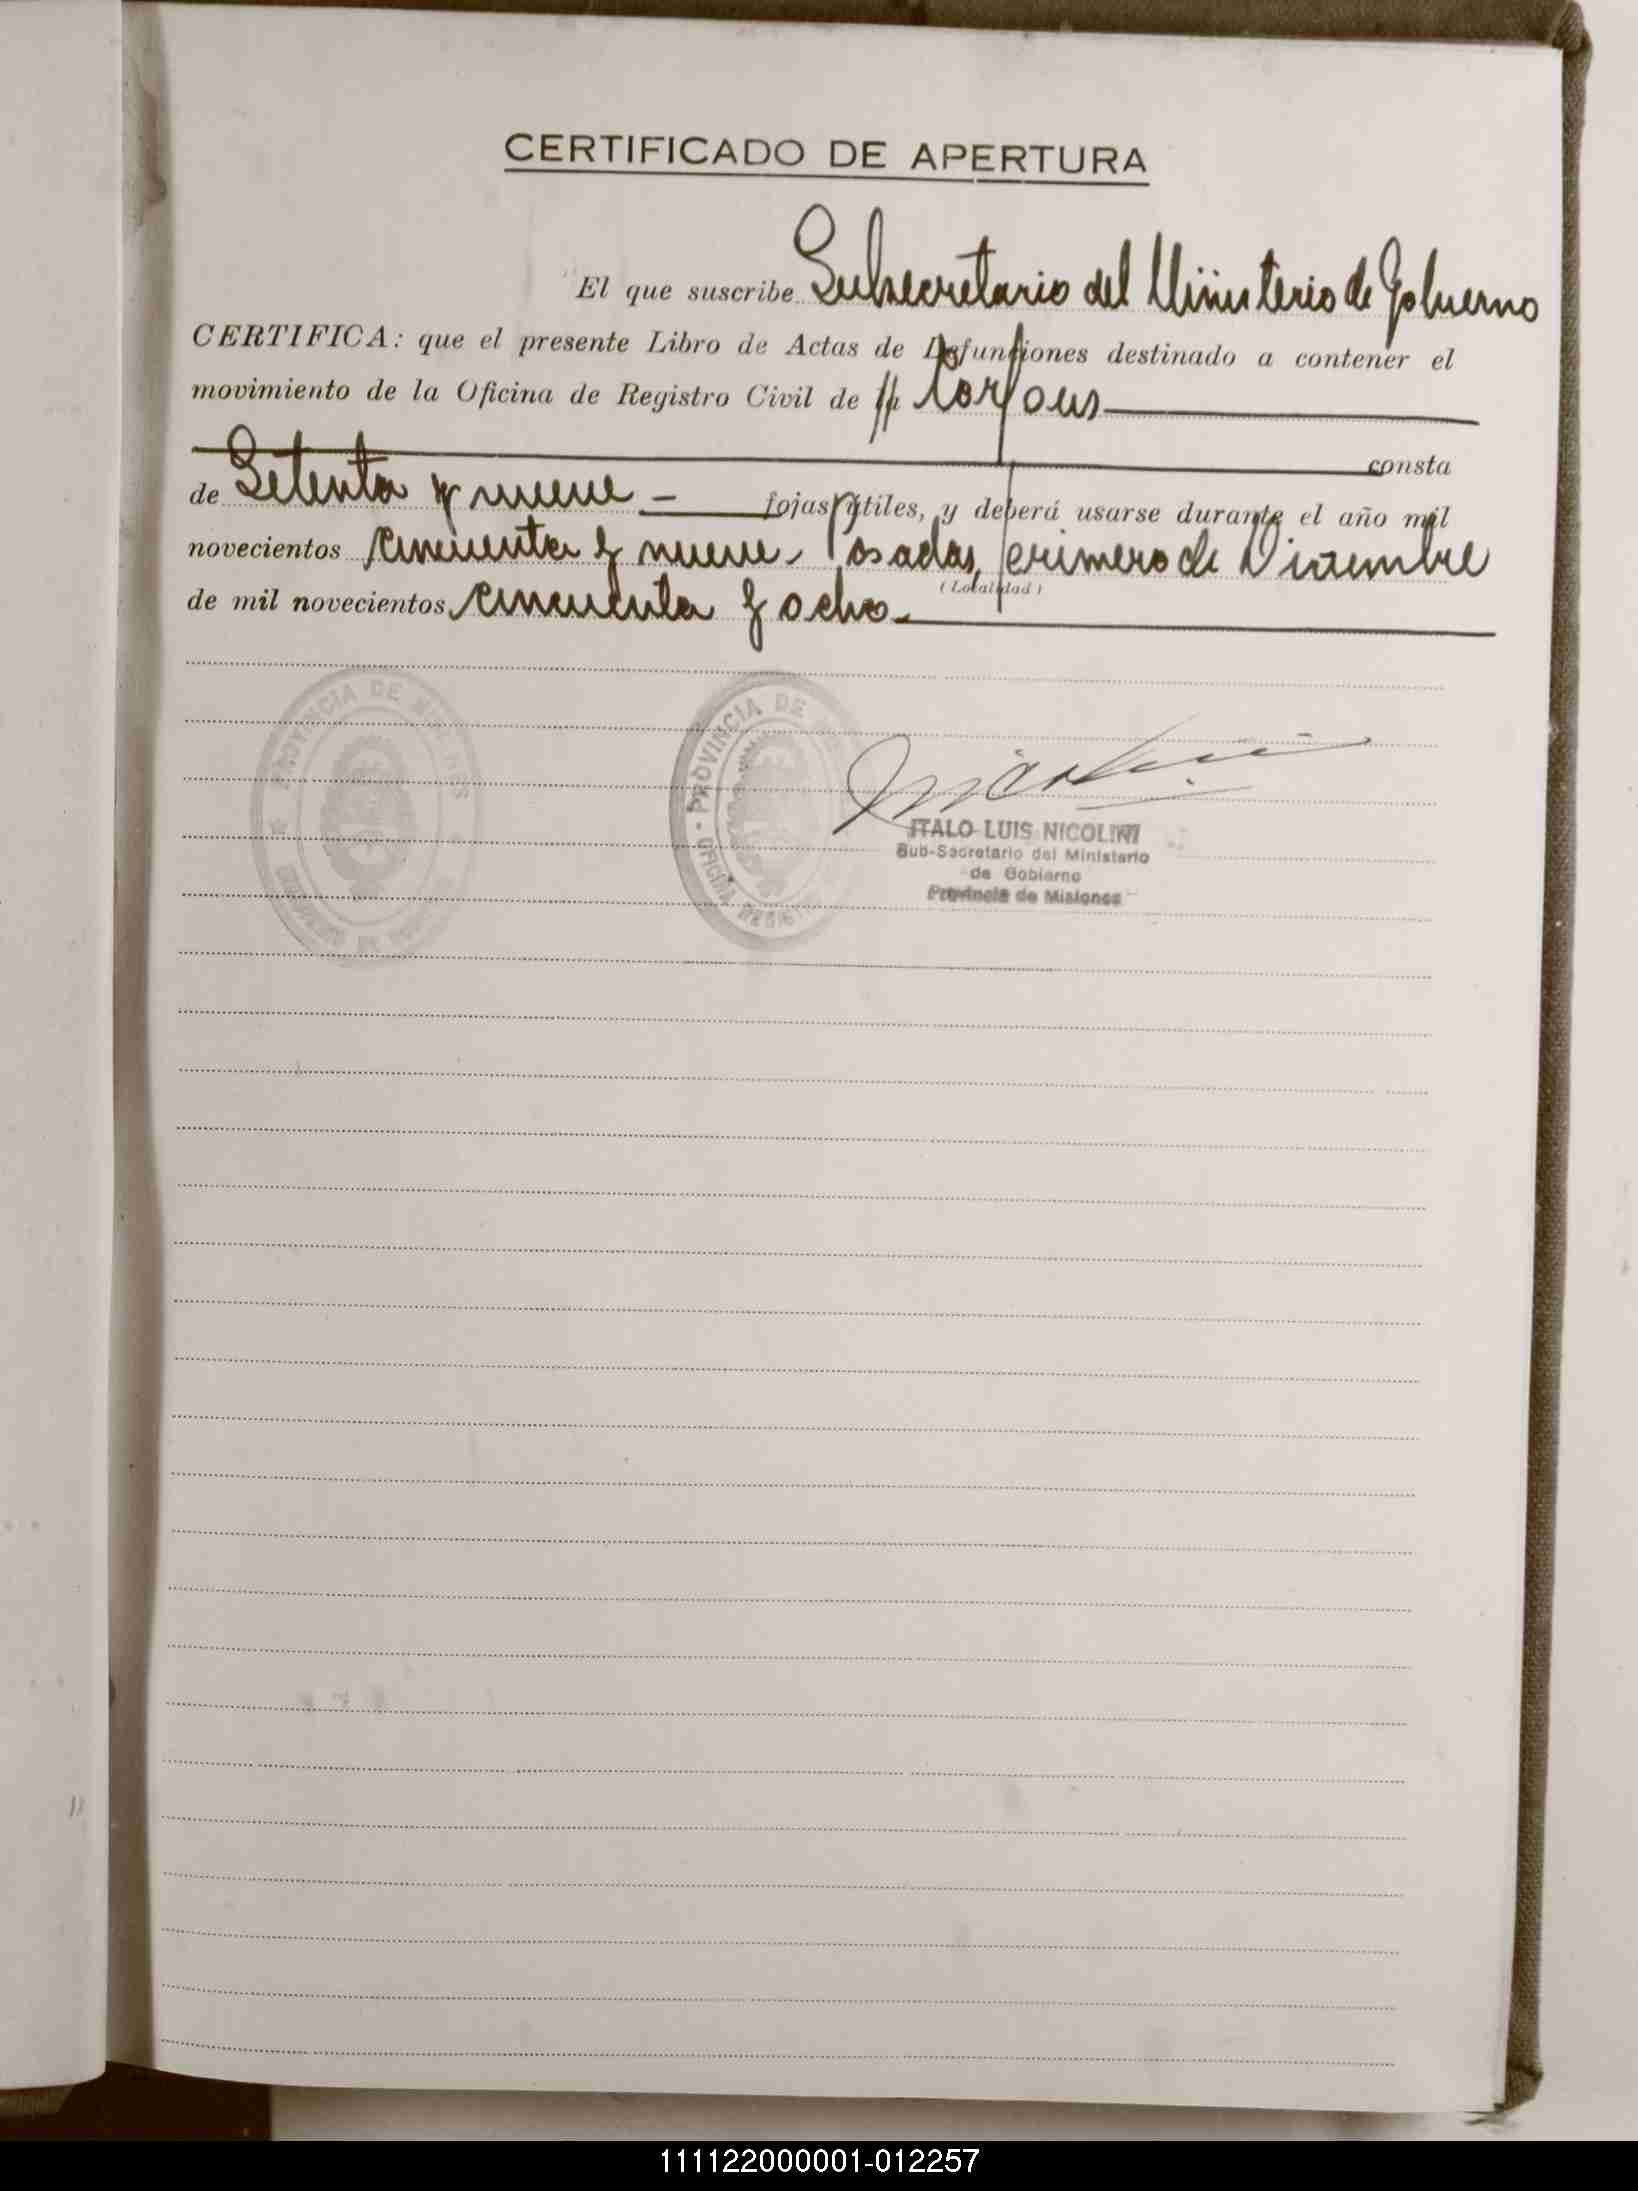 CERTIFICADO DE APERTURA
El que suscribe Subsecretario del Ministerio de Gobierno
CERTIFICA: que el presente Libro de Actas de Defunciones destinado a contener el
movimiento de la Oficina de Registro Civil de Corpus
consta
de Setenta y nueve fojas útiles, y deberá usarse durante el año mil
novecientos cincuenta y nueve. Posadas, primero de Diciembre
(Localidad)
de mil novecientos cincuenta y ocho.
PROVINCIA DE MISIONES
PROVINCIA DE
OFICINA
ITALO LUIS NICOLINI
Sub-Secretario del Ministerio
de Gobierno
Provincia de Misiones
111122000001-012257